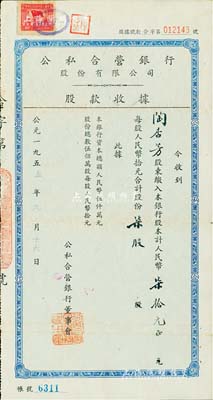 股據號數 合字第012143號
公私合營銀行
股份有限公司
股款收據
今收到
陶杏芳股東繳入本銀行股本計人民幣柒拾元正
每股人民幣拾元合計股份柒股
此據
本銀行資本總額人民幣伍仟萬元
股份總數伍佰萬股每股人民幣拾元
公私合營銀行董事會
公元一九五五年
日
帳號 6311